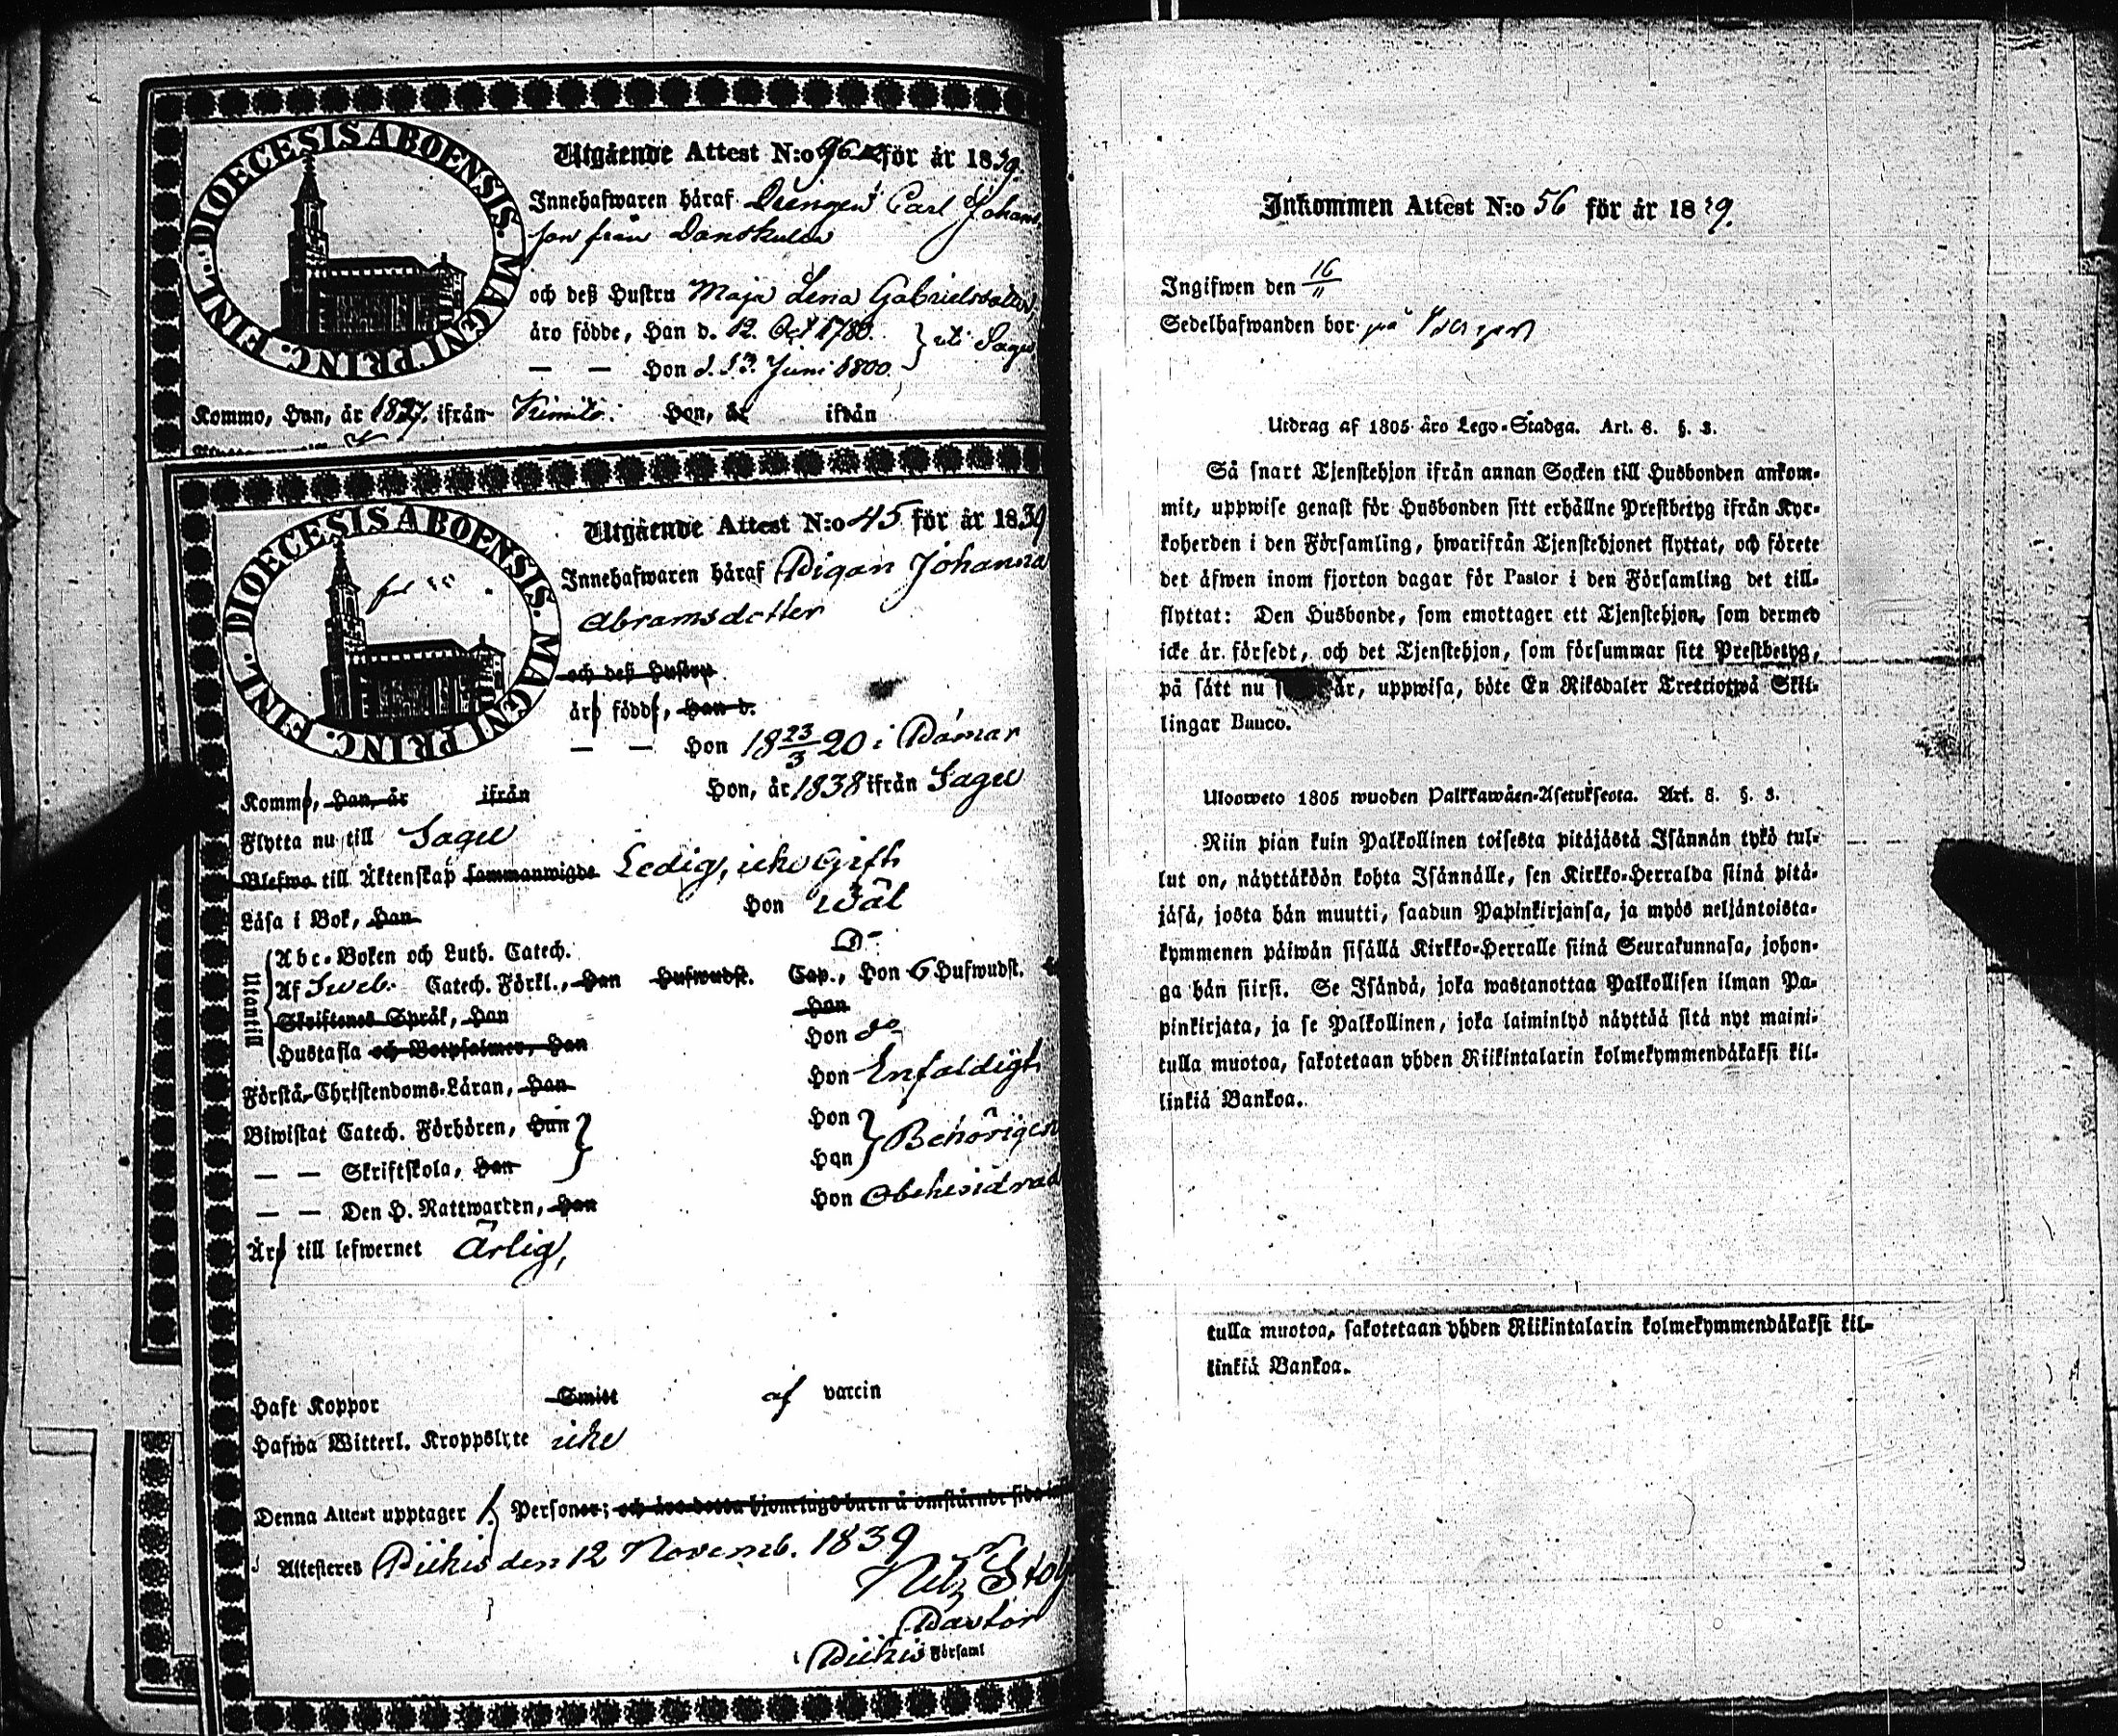 DIOECESIS ABOENSIS. MAGNI PRINC. FINL.
Utgående Attest N:o 96 för år 1839.
Innehafwaren häraf Drängen Carl Johans
son från
och deß Hustru Maja Lena Gabrielsdotter
äro födde, Han d. 12. Oct 1780. } uti Sagu
— — Hon d. 13. Juni 1800.
Kommo, Han, år 1827. ifrån Kimito. Hon, år ifrån
DIOECESIS ABOENSIS. MAGNI PRINC. FINL.
Utgående Attest N:o 45 för år 1839
Innehafwaren häraf Pigan Johanna
Abramsdotter
och deß Hustru
äro födde, Han d.
— — Hon 18 23/3 20 i Pämar
Kommo, Han, år ifrån Hon, år 1838 ifrån Sagu
Flytta nu till Sagu
Blefwo till Äktenskap sammanwigde Ledig, icke Gift
Läsa i Bok, Han Hon Wäl
Utantill
Abc-Boken och Luth. Catech. Do
Af Sweb. Catech. Förkl., Han Hufwudst. Cap., Hon 6 Hufwudst.
Skriftenes Språk, Han Hon
Hustafla och Botpsalmer, Han Hon do
Förstå Christendoms-Läran, Han Hon Enfaldigt
Biwistat Catech. Förhören, Han } Hon } Behörigen
— — Skriftskola, Han Hon
— — Den H. Nattwarden, Han Hon Obehindrad
Äro till lefwernet Ärlig,
Haft Koppor Smitt af vaccin
Hafwa Witterl. Kroppslyte icke
Denna Attest upptager 1. Personer; och äro detta hjonelags barn å omstående sida
Attesteres Piikis den 12 Novemb. 1839
Pastor
i Piikis Församl
Inkommen Attest N:o 56 för år 1839.
Ingifwen den 16/11
Sedelhafwanden bor på
Utdrag af 1805 års Lego-Stadga. Art. 8. §. 3.
Så snart Tjenstehjon ifrån annan Socken till Husbonden ankom-
mit, uppwise genast för Husbonden sitt erhållne Prestbetyg ifrån Kyr-
koherden i den Församling, hwarifrån Tjenstehjonet flyttat, och förete
det äfwen inom fjorton dagar för Pastor i den Församling det till-
flyttat: Den Husbonde, som emottager ett Tjenstehjon, som dermed
icke är försedt, och det Tjenstehjon, som försummar sitt Prestbetyg,
på sätt nu är, uppwisa, böte En Riksdaler Trettiotwå Skil-
lingar Banco.
Ulosweto 1805 wuoden Palkkawäen-Asetuksesta. Art. 8. §. 3.
Niin pian kuin Palkollinen toisesta pitäjästä Isännän tykö tul-
lut on, näyttäköön kohta Isännälle, sen Kirkko-Herralda siinä pitä-
jäsä, josta hän muutti, saadun Papinkirjansa, ja myös neljäntoista-
kymmenen päiwän sisällä Kirkko-Herralle siinä Seurakunnasa, johon-
ga hän siirsi. Se Isändä, joka wastanottaa Palkollisen ilman Pa-
pinkirjata, ja se Palkollinen, joka laiminlyö näyttää sitä nyt maini-
tulla muotoa, sakotetaan yhden Riikintalarin kolmekymmendäkaksi kil-
linkiä Bankoa.
tulla muotoa, sakotetaan yhden Riikintalarin kolmekymmendäkaksi kil-
linkiä Bankoa.